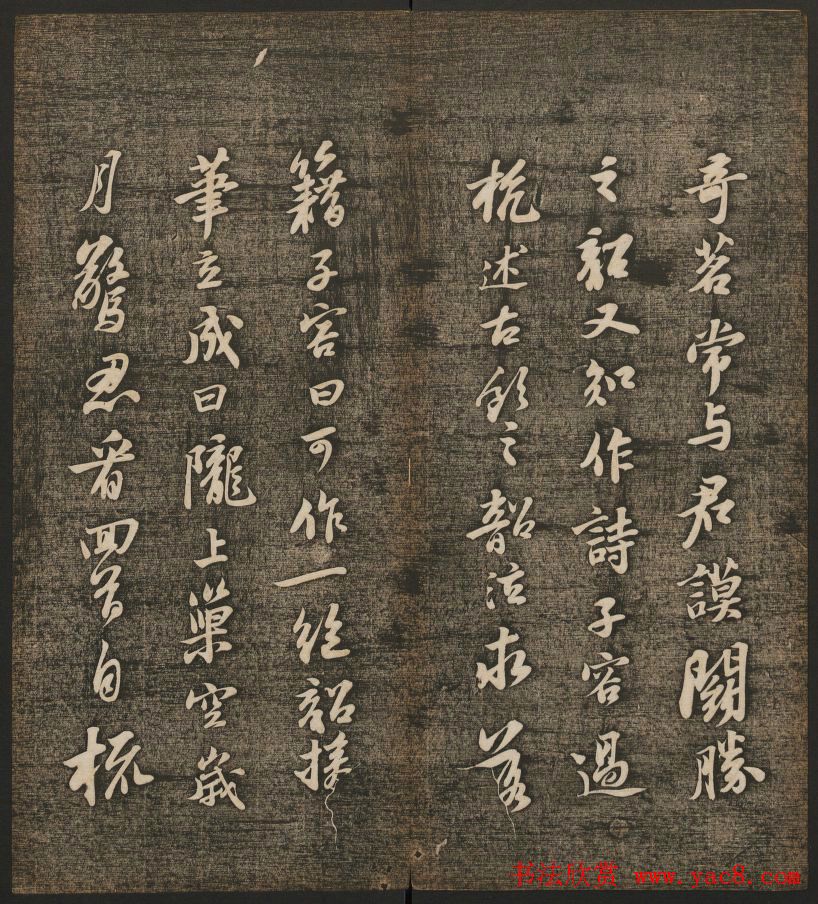 奇茗常与君謨鬪勝
之韶又知作詩子容過
杭述古飲之韶泣求落
籍子容曰可作一絕韶援
筆立成曰隴上巢空歲
月驚忍看囬首自梳
书法欣赏 www.yac8.com